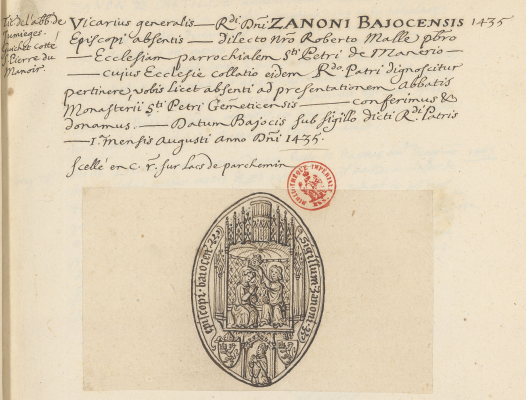 Tit. de l'abb. de
Jumieges.
Guichet cotté
S. Pierre du
Manoir.
Vicarius generalis — R.di Dñi ZANONI BAJOCENSIS 1435
Episcopi absentis — Dilecto nro Roberto Malle pbro
— Ecclesiam parrochialem Sti Petri de Manerio —
— cujus Ecclesie collatio eidem Rdo Patri dignoscitur
pertinere vobis licet absenti ad presentationem Abbatis
Monasterii Sti Petri Gemeticensis — conferimus &
donamus. — Datum Bajocis sub sigillo dicti R.di Patris
— 1. mensis Augusti anno Dñi 1435.
scellé en c. r. sur lacs de parchemin
BIBLIOTHEQUE IMPERIALE
sigillum zanonis
episcopi baiocen